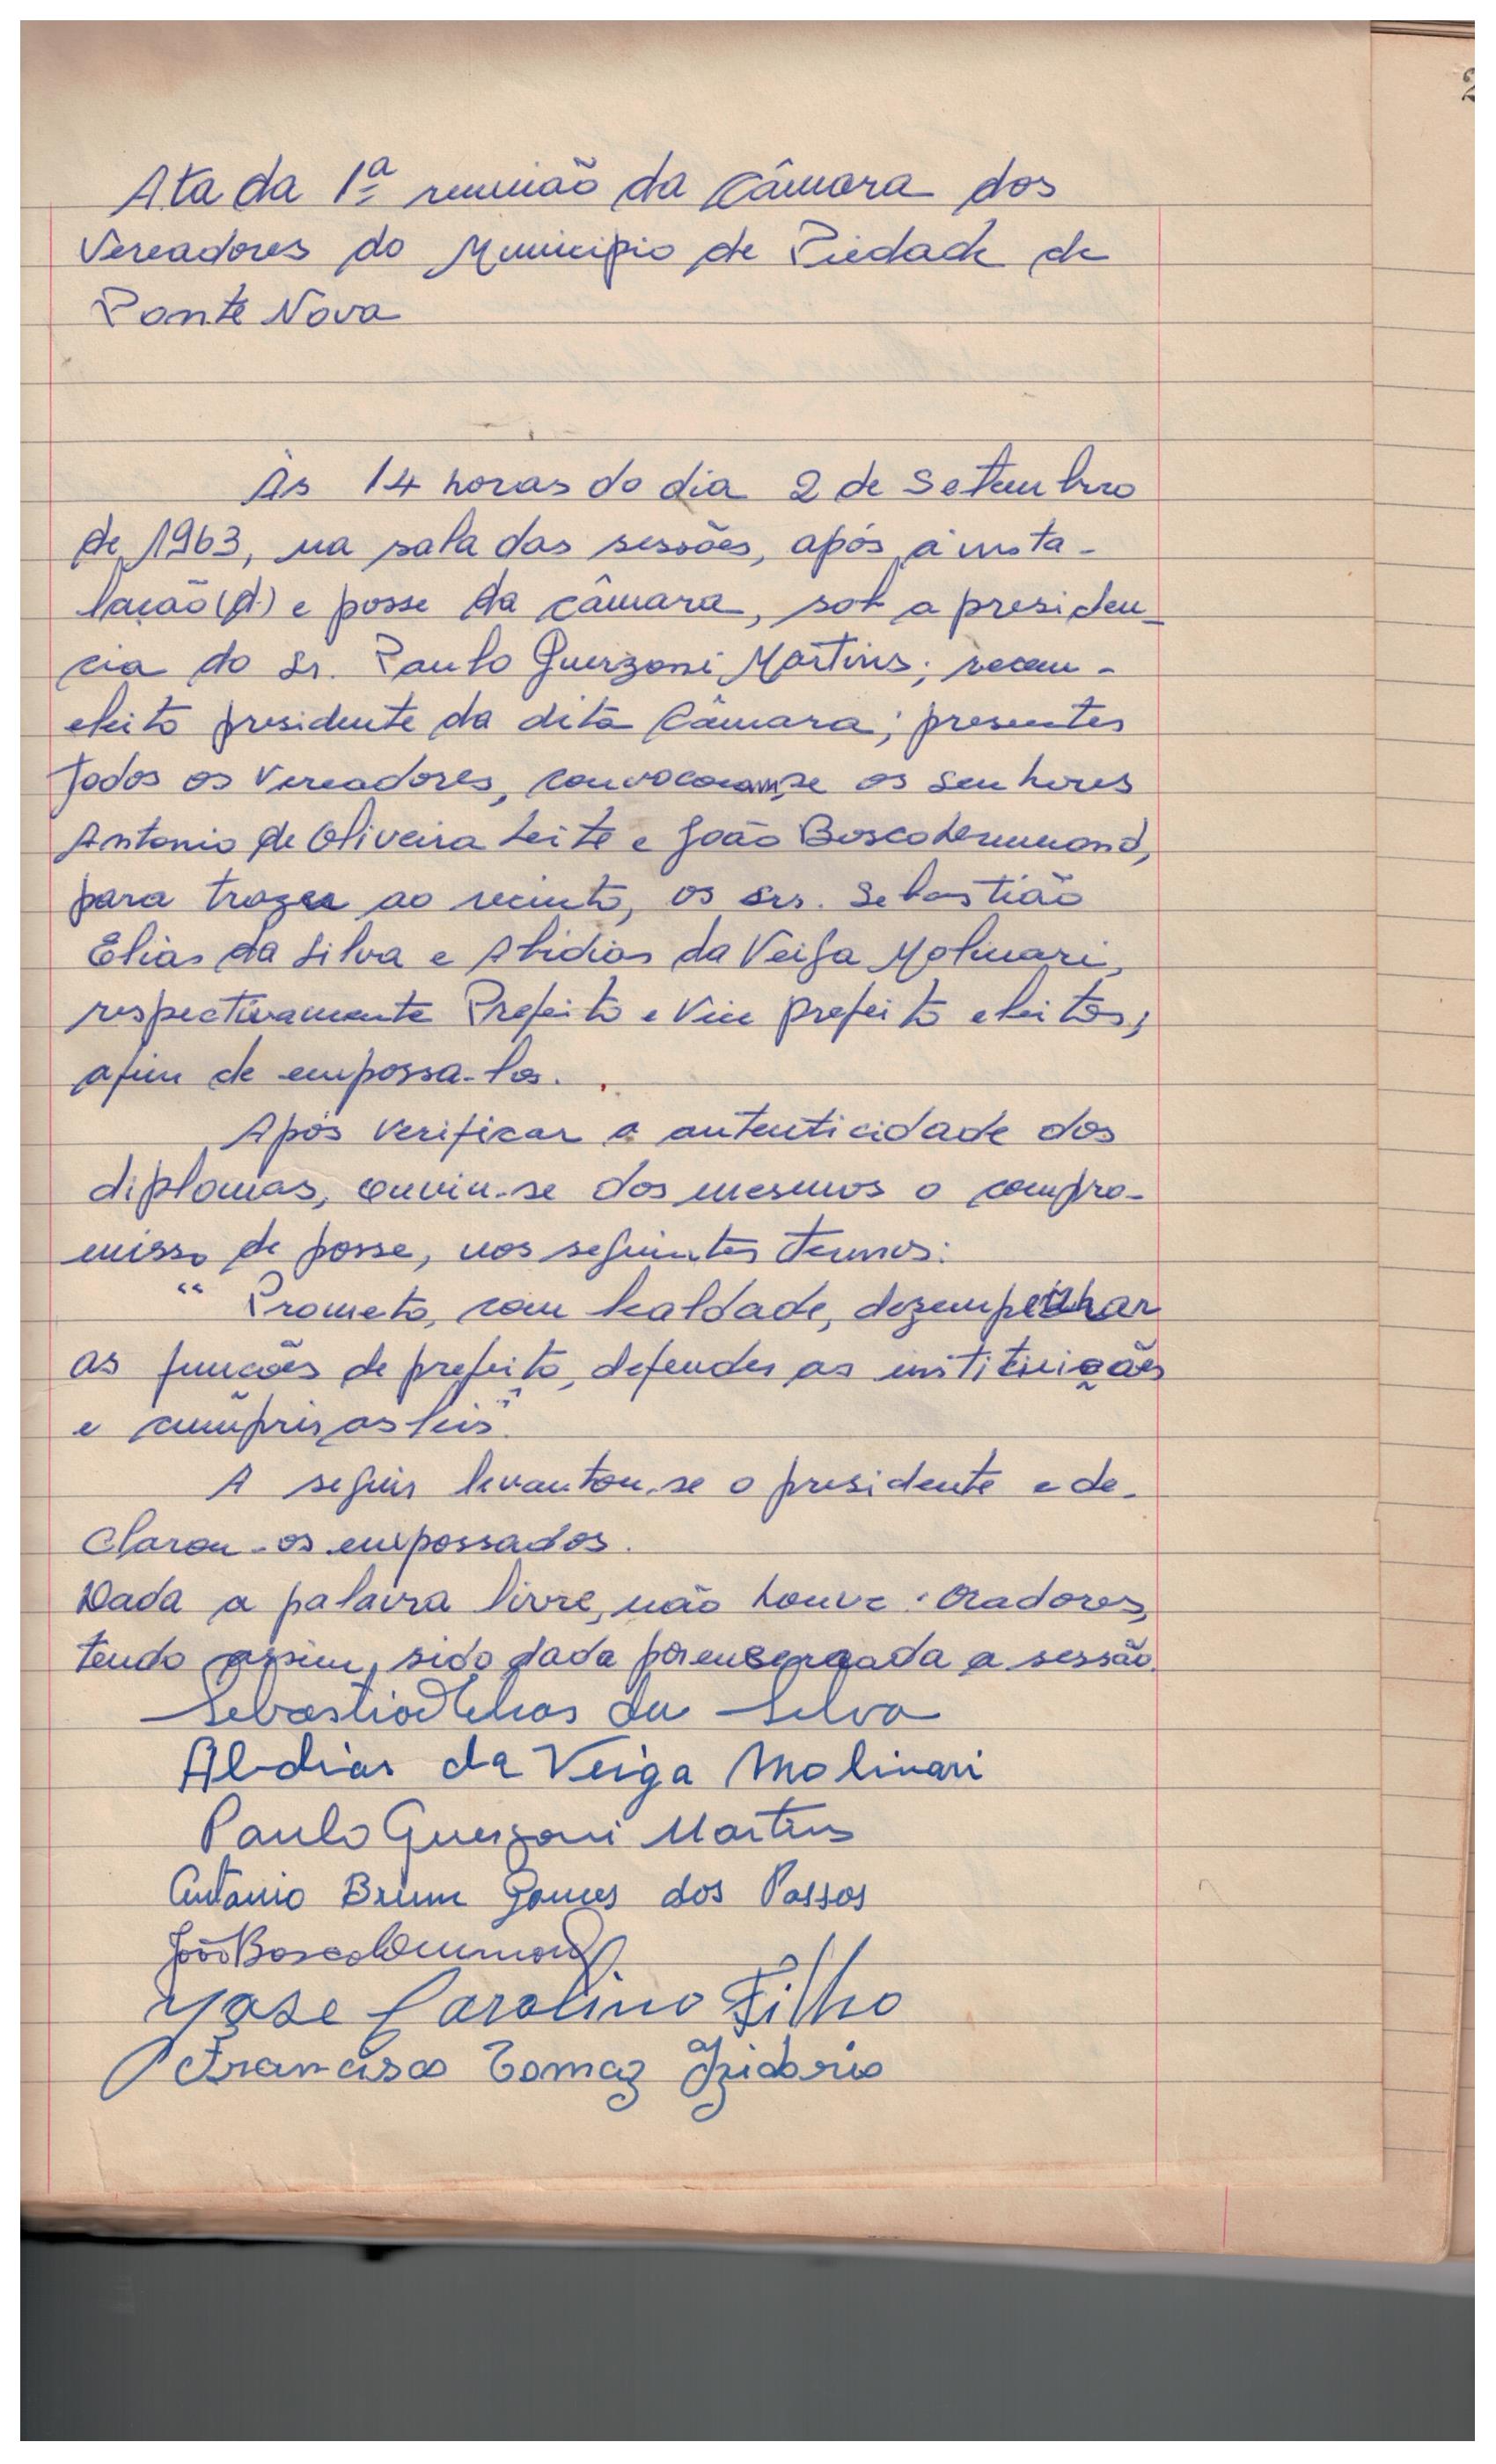 Ata da 1ª reunião da Câmara dos
Vereadores do Municipio de Piedade de
Ponte Nova
Às 14 horas do dia 2 de Setembro
de 1963, na sala das sessões, após a insta-
lação(d) e posse da câmara, sob a presiden-
cia do Sr. Paulo Guerzoni Martins; recem-
eleito presidente da dita Câmara; presentes
todos os Vereadores, convocaram-se os Senhores
Antonio de Oliveira Leite e João Bosco Drummond,
para trazer ao recinto, os Srs. Sebastião
Elias da Silva e Abidias da Veiga Molinari,
respectivamente Prefeito e Vice prefeito eleitos;
afim de empossa-los.
Após verificar a autenticidade dos
diplomas, ouviu-se dos mesmos o compro-
misso de posse, nos seguintes termos:
"Prometo, com lealdade, dezempenhar
as funções de prefeito, defender as instituições
e cumprir as leis".
A seguir levantou-se o presidente e de-
clarou-os empossados.
Dada a palavra livre, não houve oradores,
tendo assim, sido dada por encerrada a sessão.
Sebastião Elias da Silva
Abdias da Veiga Molinari
Paulo Guerzoni Martins
Antonio Brum Gomes dos Passos
João Bosco Drummond
Jose Carolino Filho
Francisco Tomaz Izidorio